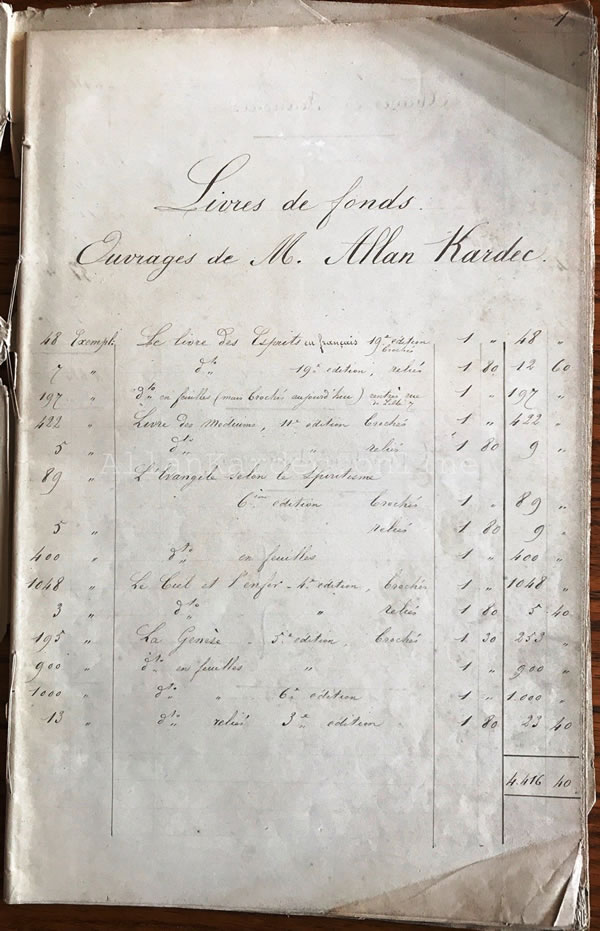 1
Livres de fonds.
Ouvrages de M. Allan Kardec.
48 Exempl. Le livre des Esprits en français 19e edition brochés 1 " 48 "
7 " dto " 19e edition, reliés 1 80 12 60
197 " dto en feuilles (mais brochés aujourd'hui) rue de Lille 7 1 " 197 "
422 " Livre des Mediums, 11e edition brochés 1 " 422 "
5 " dto " reliés 1 80 9 "
89 " L'Evangile selon le Spiritisme
6ème edition brochés 1 " 89 "
5 " reliés 1 80 9 "
400 " dto en feuilles 1 " 400 "
1048 " Le Ciel et l'enfer - 4e edition, brochés 1 " 1048 "
3 " dto " reliés 1 80 5 40
195 " La Genèse - 5e edition, brochés 1 30 253 "
900 " dto en feuilles " 1 " 900 "
1000 " dto " 6e edition 1 " 1.000 "
13 " dto reliés 3e edition 1 80 23 40
4.416 40
AllanKardec.online